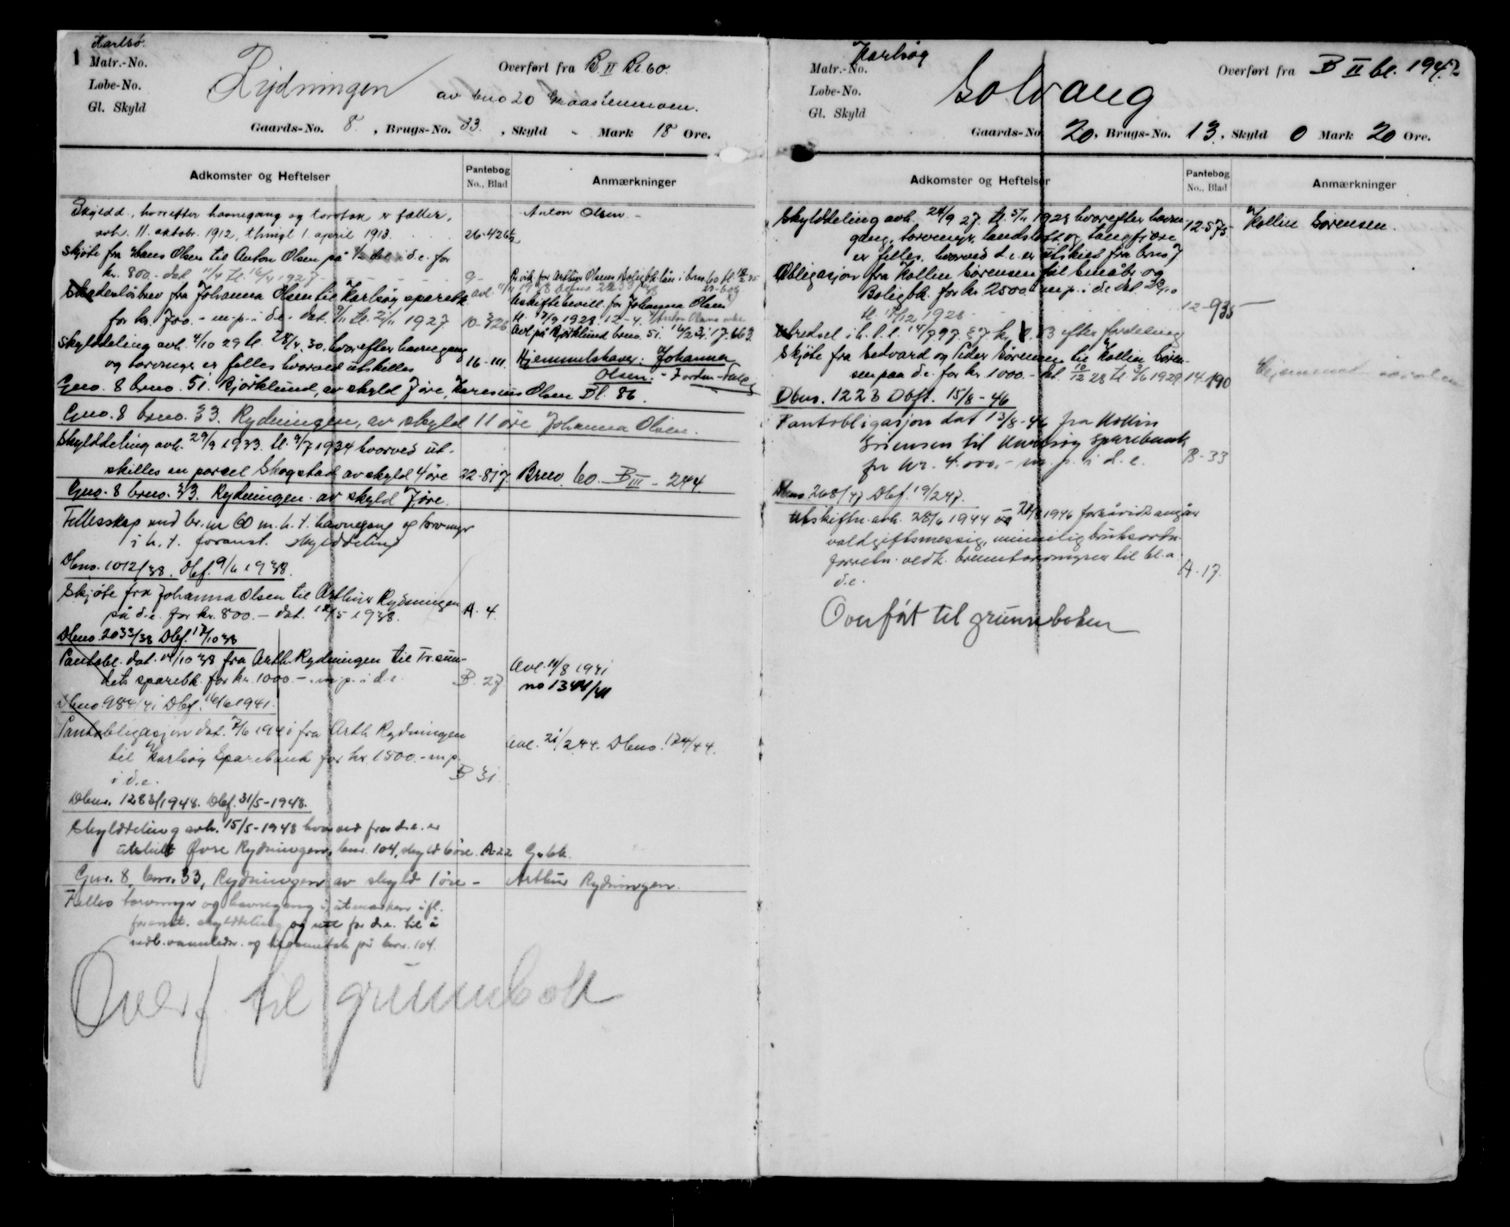 1
Karlsø.
Matr.-No.
Løbe-No.
Gl. Skyld
Rydningen
Overført fra B II Bl 60.
av bno 20
Gaards-No. 8, Brugs-No. 33, Skyld - Mark 18 Øre.
Adkomster og Heftelser
Pantebog
No., Blad
Anmærkninger
Skyldd., hvorefter havnegang og torvtak er fælles,
avh. 11. oktob. 1912, thingl 1 april 1913. 26-426b
Anton Olsen -
Skjøte fra Hans Olsen til Anton Olsen på d.e. for
kr. 800.- dat.
Skadesløsbrev fra Johanna Olsen til Karlsøy spareb.
for kr. 700. - m.p. i d.e. dat. 1927 10-326
Uskiftebevill. for Johanna Olsen
Skylddeling avh. 4/10 29 tl. 28/4. 30, hvorefter havnegang
og torvmyr er felles hvorved utskilles 16-111.
Hjemmelshaver: Johanna
Olsen.
Gno. 8 bno. 51. Bjørklund, av skyld 7 øre, Karenius Olsen Bl. 86.
Gno. 8 bno. 33. Rydningen, av skyld 11 øre Johanna Olsen.
Skylddeling avh. 29/9 1933. tl. 9/7 1934 hvorved ut-
skilles en parcel Skogstad av skyld 4 øre 22-817. Brno. 60. B III - 244.
Gno. 8 brno. 33. Rydningen. av skyld 7 øre.
Fellesskap med br.nr 60 m.h.t. havnegang og torvmyr
i h.t. foranst. skylddeling
Dbno. 1012/38. Dbf. 9/6 1938.
Skjøte fra Johanna Olsen til Arthur Rydningen
på d.e. for kr. 800.- dat. 1938. A. 4.
Dbno. 2033/38 Dbf. 17/10 38
Pantobl. dat. 14/10 38 fra Arth. Rydningen til Tr.sun-
dets sparebk. for kr. 1000.- m.p. i d.e. B. 27
Avl. 11/8 1941
no 1344/41
Dbno 984/41 Dbf. 16/6 1941.
Pantobligasjon dat. 7/6 1941 fra Arth Rydningen
til Karlsøy Sparebank for kr 1500.- m.p.
i d.e. B 31.
Avl. 21/2 44. Dbno. 174/44.
Dbno. 1283/1948. Dbf. 31/5-1948.
Skylddeling avh. 15/5-1948 hvorved fra d.e. er
utskilt Øvre Rydningen, bnr. 104, skyld 6 øre. A-22 G.bk.
Gnr. 8, bnr. 33, Rydningen av skyld 1 øre - Arthur Rydningen.
Felles torvmyr og havnegang i utmarken ifl.
foranst. skylddeling og rett for d.e. til å
vedl. vannledn. og på bnr. 104.
Overf. til grunnbok
Karlsøy
Matr.-No.
Løbe-No.
Gl. Skyld
Solvang
Overført fra B II bl. 1942
Gaards-No. 20, Brugs-No. 13, Skyld 0 Mark 20 Øre.
Adkomster og Heftelser
Pantebog
No., Blad
Anmærkninger
Skylddeling avh. 24/9 27. tl. 5/1 1928 hvorefter havne-
gang, torvmyr, landslott og tangfjøre
er felles, hvorved d.e. er utskilt fra bno 7 12-575
Kollin Sørensen.
Obligasjon fra Kollin Sørensen til Småbr. og
Boligbk. for kr. 2500.- m.p. i d.e. dat.
tl. 17/12 1928. 12-935
Skjøte fra Edvard og Peder Sørensen til Kollin Søren-
sen paa d.e. for kr. 1000.- dat. 10/12 28 tl. 3/6 1929. 14-190
Dbno. 1223 Dbf. 15/8-46
Pantobligasjon dat 13/8-46 fra Kollin
Sørensen til Karlsøy Sparebank
for kr. 4.000,- m.p. i d.e. B-33
Dbno 268/47 Dbf. 19/2 47.
Utskiftn. avh. 28/6 1944 og 28/8 1946 forsåvidt angår
voldgiftsmessig, minnelig bruksordn.
forretn. vedk. brenntorvmyrer til bl.a.
d.e. A. 17.
Overført til grunnboken